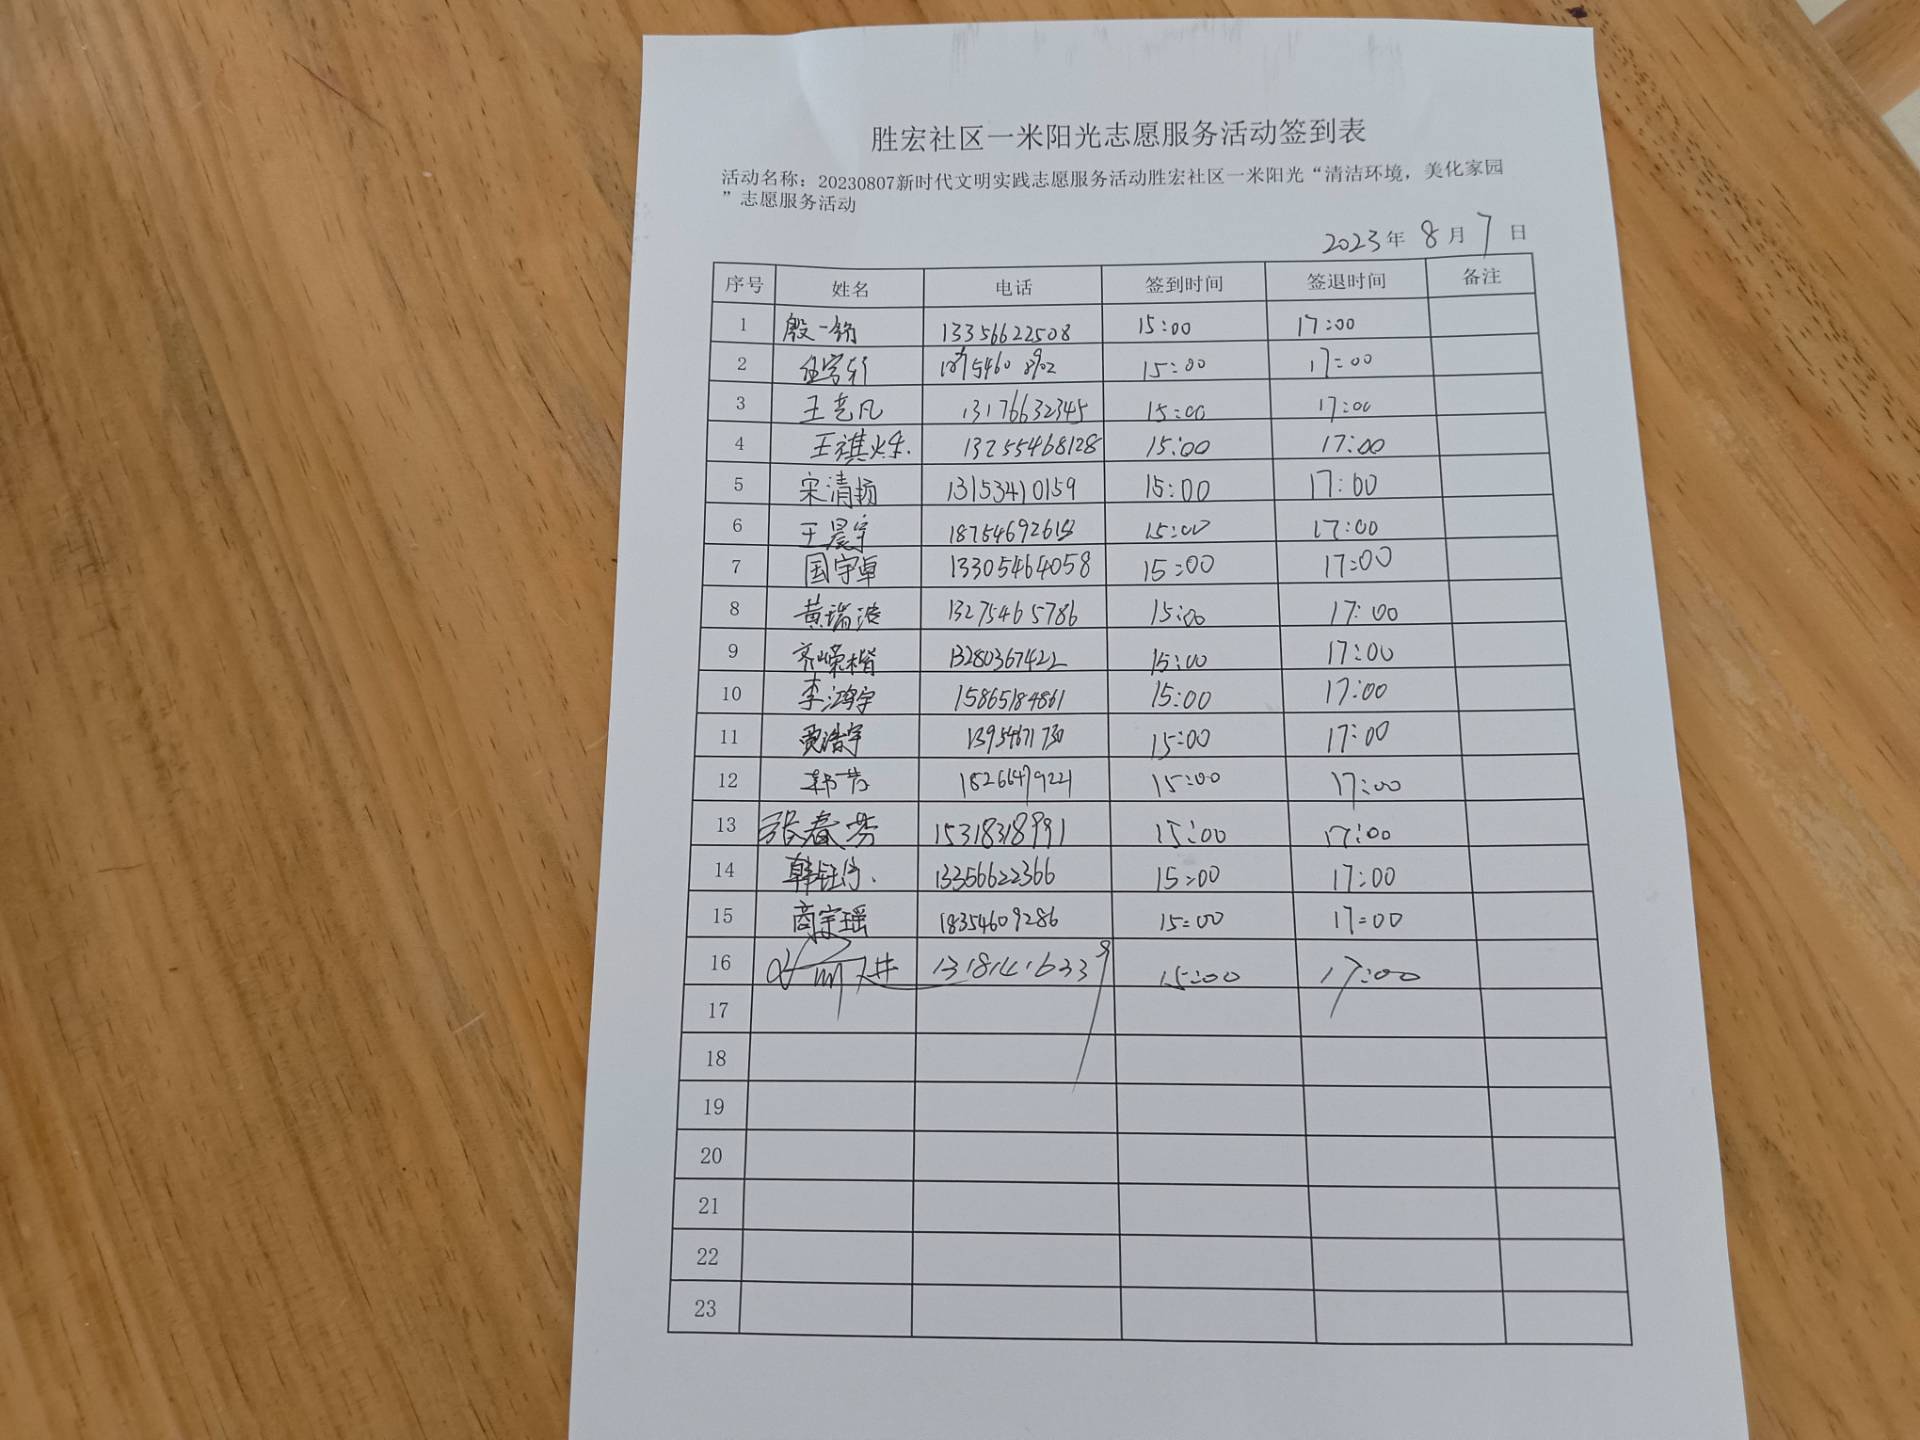 胜宏社区一米阳光志愿服务活动签到表
活动名称：20230807新时代文明实践志愿服务活动胜宏社区一米阳光“清洁环境，美化家园
”志愿服务活动
2023年 8月 7日
序号 姓名 电话 签到时间 签退时间 备注
1 殷一铭 13356622508 15:00 17:00
2 15:00 17:00
3 王艺凡 13176632345 15:00 17:00
4 王祺烁 13255468128 15:00 17:00
5 宋清扬 13153410159 15:00 17:00
6 王晨宇 15:00 17:00
7 国宇卓 13305464058 15:00 17:00
8 黄瑞浩 13275465786 15:00 17:00
9 齐嵘楷 13280367422 15:00 17:00
10 李鸿宇 15865184861 15:00 17:00
11 贾浩宇 15:00 17:00
12 韩芳 15:00 17:00
13 张春芳 15318318991 15:00 17:00
14 13356622366 15:00 17:00
15 商宗瑶 18354609286 15:00 17:00
16 15:00 17:00
17
18
19
20
21
22
23